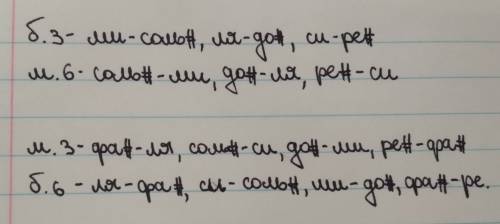 б.3- ми-соль#, ля-до#, си-ре#
м.6- соль#-ми, до#-ля, ре#-си
м.3- фа#-ля, соль#-си, до#-ми, ре#-фа#
б.6 - ля-фа#, си-соль#, ми-до#, фа#-ре.